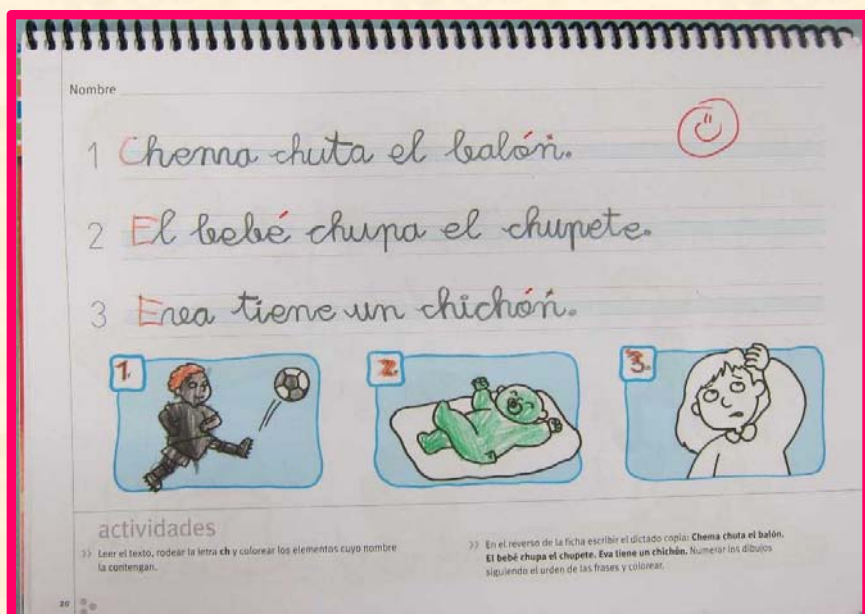 Nombre
1 Chema chuta el balón.
2 El bebé chupa el chupete.
3 Enea tiene un chichón.
1. 2. 3.
actividades
>> Leer el texto, rodear la letra ch y colorear los elementos cuyo nombre
la contengan.
>> En el reverso de la ficha escribir el dictado copia: Chema chuta el balón.
El bebé chupa el chupete. Eva tiene un chichón. Numerar los dibujos
siguiendo el orden de las frases y colorear.
20